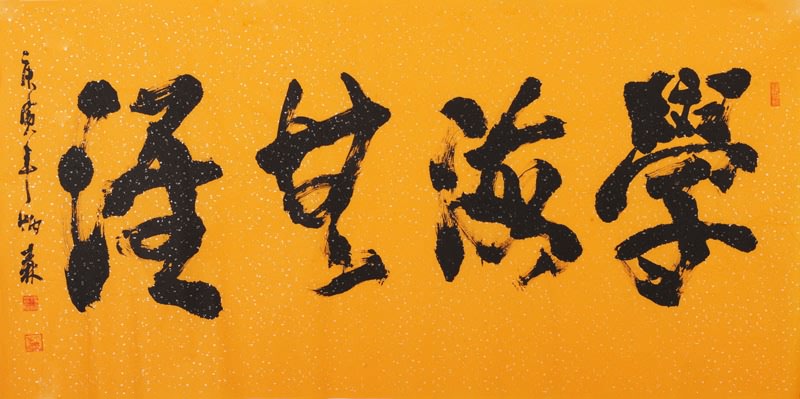 學海無涯
庚寅年炳森